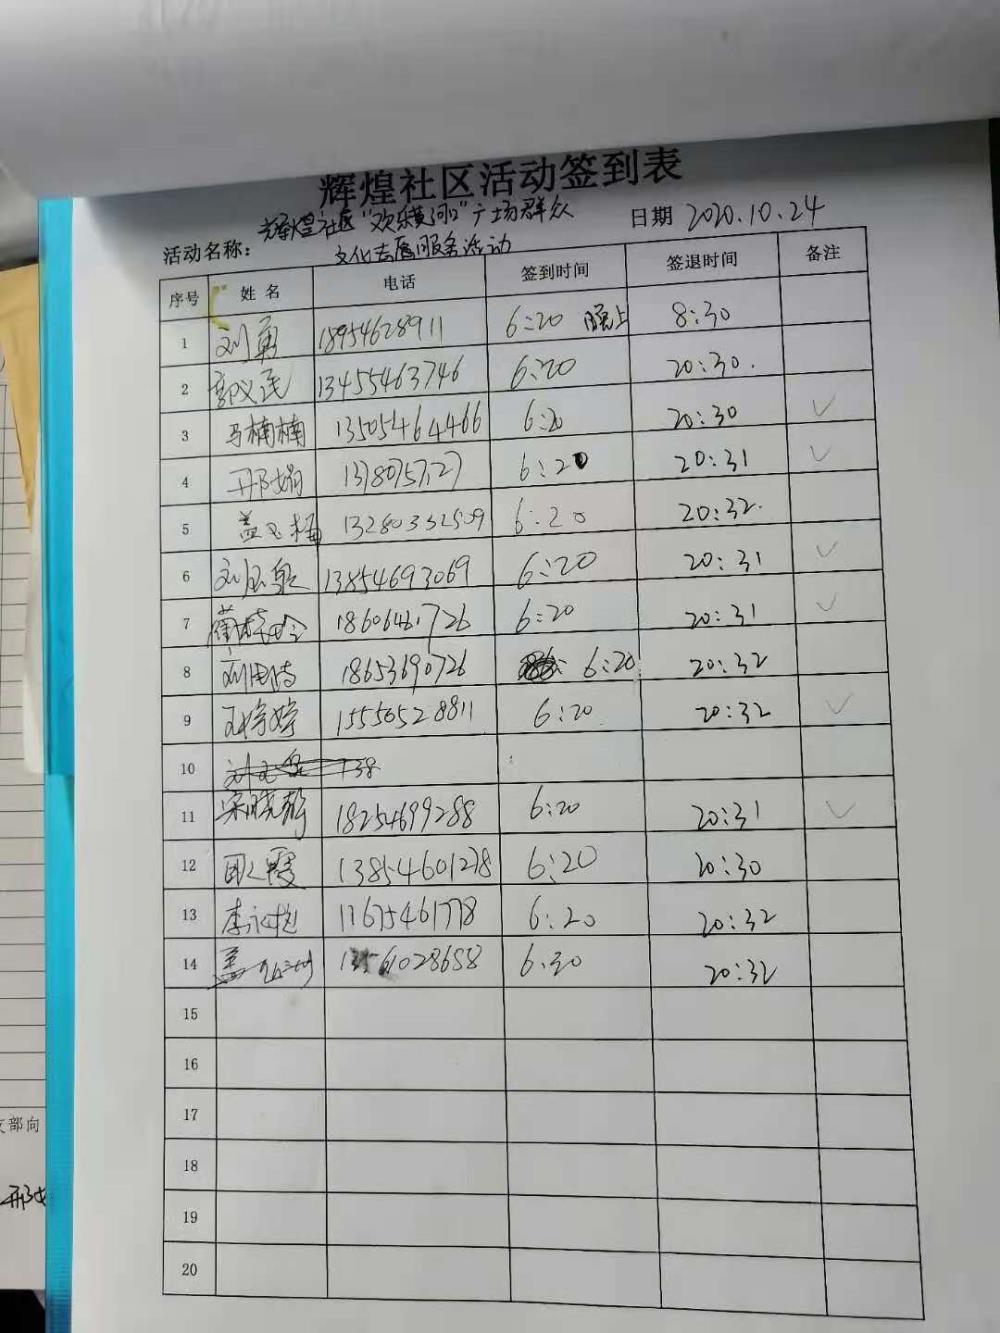 辉煌社区活动签到表
活动名称： 辉煌社区"欢乐黄河口"广场群众 日期 2020.10.24
文化志愿服务活动
序号 姓名 电话 签到时间 签退时间 备注
1 刘勇 18954628911 6:20 晚上 8:30
2 郭义民 13455463746 6:20 20:30.
3 马楠楠 13505464466 6:20 20:30 ✓
4 邢娟 6:20 20:31 ✓
5 盖玉梅 13280332509 6:20 20:32.
6 刘玉泉 13854693069 6:20 20:31 ✓
7 18606461726 6:20 20:31 ✓
8 18653690726 6:20 20:32
9 王婷婷 15550528811 6:20 20:32 ✓
10
11 宋晓静 18254699288 6:20 20:31 ✓
12 13854601278 6:20 20:30
13 李 6:20 20:32
14 盖 6:20 20:32
15
16
17
18
19
20
支部向
邢